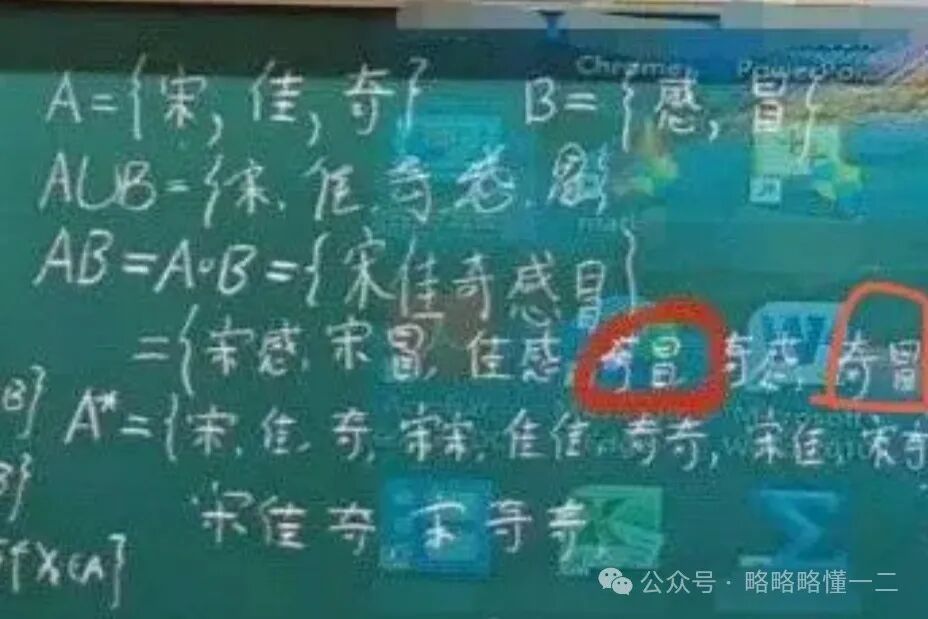 Chrome PowerPo
A={宋,佳,奇} B={感,冒}
AUB={宋.佳.奇.感.冒}
AB=A∘B={宋佳奇感冒}
={宋感.宋冒.佳感.奇冒 奇感.奇冒
B} A*={宋.佳.奇,宋宋.佳佳.奇奇,宋佳.宋奇
B}
宋佳奇 宋奇奇.
公众号·略略略懂一二